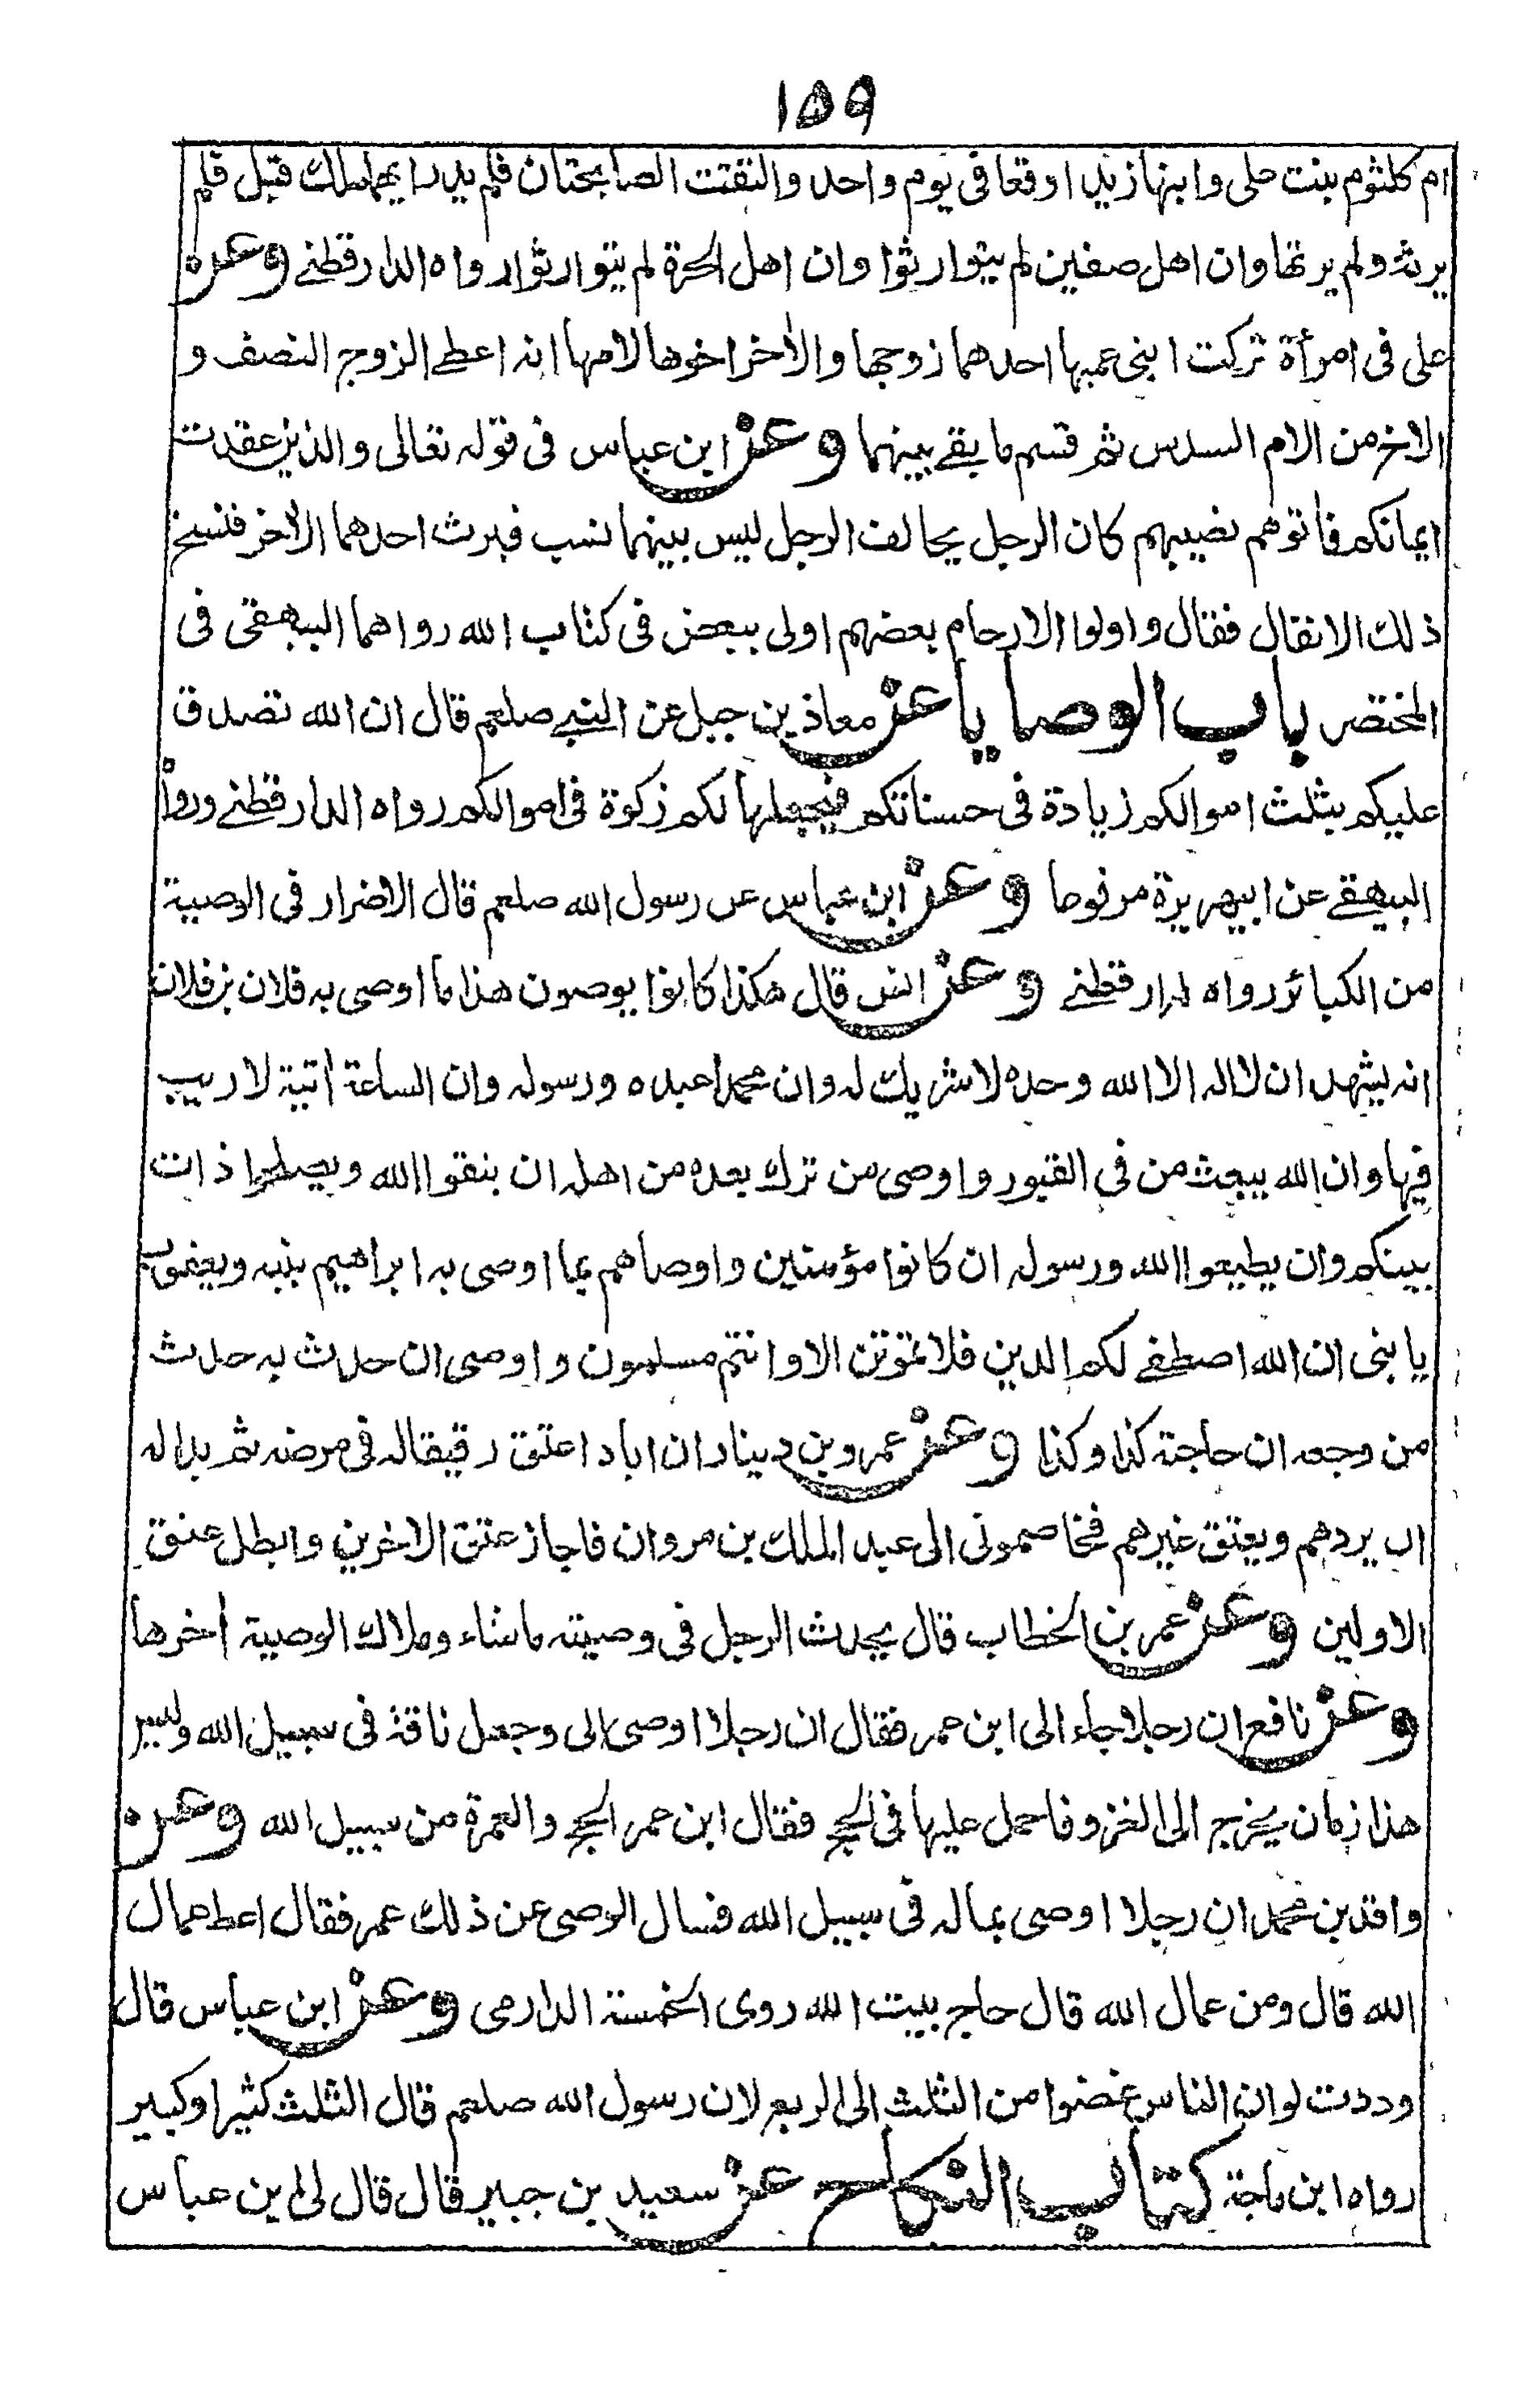 ١٥٩
ام كلثوم بنت على وابنها زيد اوقعا فى يوم واحد والتقت الصائحتان فلم يدر ايهما هلك قبل فلم
يرثه ولم يرثها وان اهل صفين لم يتوارثوا وان اهل الحرة لم يتوارثوا رواه الدارقطنے وعن
على فى امرأة تركت ابنى عمها احدهما زوجها والأخر اخوها لامها انه اعطے الزوج النصف و
الاخ من الام السدس ثم قسم ما بقے بينهما وعن ابن عباس فى قوله تعالى والذين عقدت
ايمانكم فاتوهم نصيبهم كان الرجل يحالف الرجل ليس بينهما نسب فيرث احدهما الأخر فنسخ
ذلك الانفال فقال واولوا الارحام بعضهم اولى ببعض فى كتاب الله رواهما البيهقى فى
المختصر باب الوصايا عن معاذ بن جبل عن النبے صلعم قال ان الله تصدق
عليكم بثلث اموالكم زيادة فى حسناتكم فيجعلها لكم زكوة فى اموالكم رواه الدارقطنے ورواه
البيهقے عن ابيهريرة مرفوعا وعن ابن عباس عن رسول الله صلعم قال الاضرار فى الوصية
من الكبائر رواه الدارقطنے وعن انس قال هكذا كانوا يوصون هذا ما اوصى به فلان بن فلان
انه يشهد ان لا اله الا الله وحده لا شريك له وان محمدا عبده ورسوله وان الساعة أتية لا ريب
فيها وان الله يبعث من فى القبور واوصى من ترك بعده من اهله ان يتقوا الله ويصلحوا ذات
بينكم وان يطيعوا الله ورسوله ان كانوا مؤمنين واوصاهم بما اوصى به ابراهيم بنيه ويعقوب
يا بنى ان الله اصطفے لكم الدين فلا تموتن الا وانتم مسلمون واوصى ان حدث به حدث
من وجعه ان حاجته كذا وكذا وعن عمرو بن دينار ان اباد اعتق رقيقا له فى مرضه ثم بدا له
ان يردهم ويعتق غيرهم فخاصمونى الى عبد الملك بن مروان فاجاز عتق الاخرين وابطل عتق
الاولين وعن عمر بن الخطاب قال يحدث الرجل فى وصيته ما شاء وملاك الوصية أخرها
وعن نافع ان رجلا جاء الى ابن عمر فقال ان رجلا اوصى الى وجعل ناقة فى سبيل الله وليس
هذا زمان يخرج الى الغزو فاحمل عليها فى الحج فقال ابن عمر الحج والعمرة من سبيل الله وعن
واقد بن محمد ان رجلا اوصى بماله فى سبيل الله فسال الوصى عن ذلك عمر فقال اعط عمال
الله قال ومن عمال الله قال حاج بيت الله روى الخمسة الدارمى وعن ابن عباس قال
وددت لو ان الناس غضوا من الثلث الى الربع لان رسول الله صلعم قال الثلث كثير او كبير
رواه ابن ماجة كتاب النكاح عن سعيد بن جبير قال قال لى ابن عباس